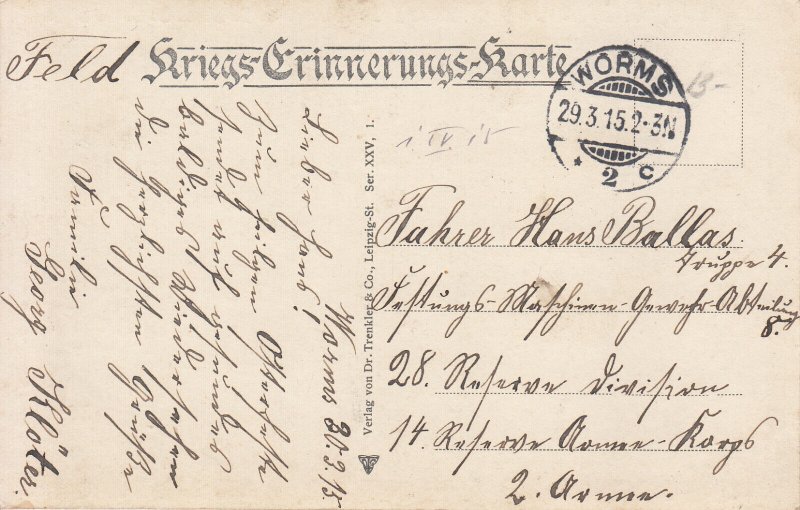 Feld
Kriegs-Erinnerungs-Karte
WORMS
29.3.15.2-3N
* 2 c
13-
1 IV 15
Fahrer Hans Ballas.
Truppe 4.
Festungs-Maschinen-Gewehr-Abteilung
8.
28. Reserve Division
14. Reserve Armee-Korps
2. Armee.
Verlag von Dr. Trenkler & Co., Leipzig-St. Ser. XXV, 1.
Worms 30.3.15
Lieber Hans!
Zum heiligen Osterfeste
sendet auf
baldiges Wiedersehen
die herzlichsten Grüße
Familie
Georg Klöter.